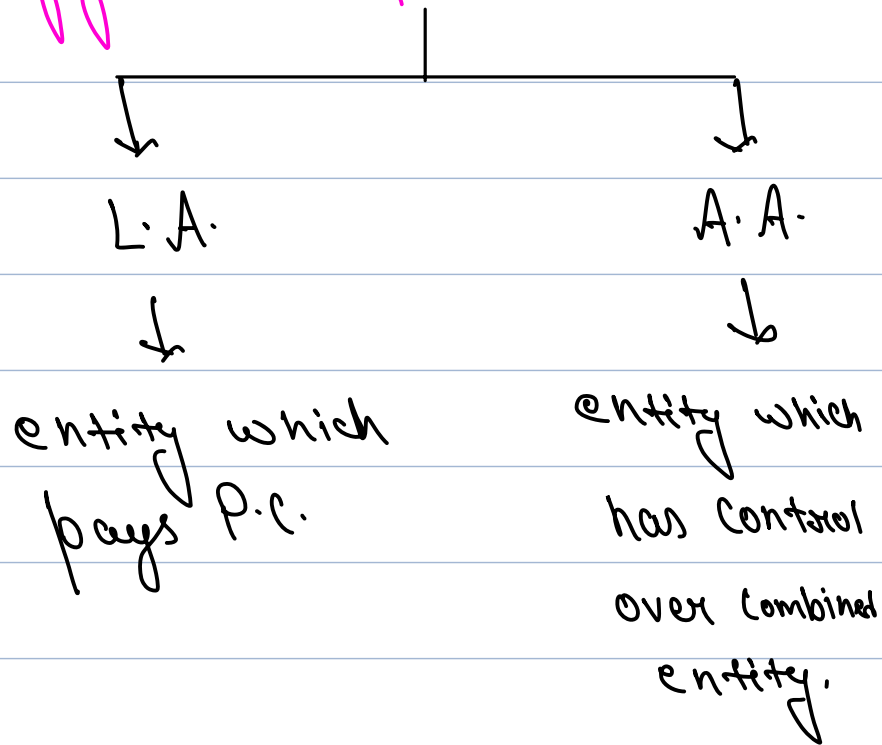 L.A.
A.A.
entity which
pays P.C.
entity which
has control
over combined
entity.